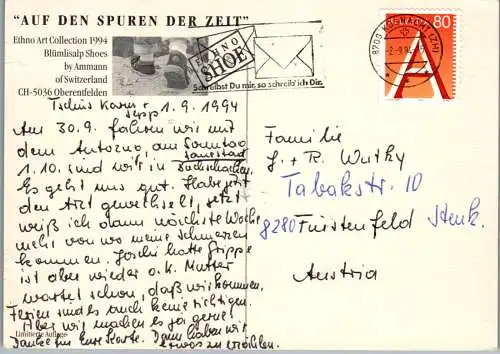 "AUF DEN SPUREN DER ZEIT"
Ethno Art Collection 1994
Blümlisalp Shoes
by Ammann
of Switzerland
CH-5036 Oberentfelden
ETHNO
SHOE
Schreibst Du mir, so schreib' ich Dir.
8700 KÜSNACHT (ZH)
-2.-9.94
80
A
1.9.1994
Am 30.9. fahren wir mit
dem Autozug, am Sonntag
Samstag
1.10. sind wir in
Es geht uns gut. Habe jetzt
den Arzt gewechselt, jetzt
weiß ich dann nächste Woche
mehr von wo meine Schmerzen
kommen. Joschi hatte Grippe
ist aber wieder o.k. Mutter
wartet schon, daß wir kommen.
Ferien sind es auch keine richtigen.
Aber wir machen es ja gerne.
Danke für Eure Karte. Dann haben wir
etwas zu erzählen.
Limitierte Auflage
Familie
J. + R. Wutky
Tabakstr. 10
8280 Fürstenfeld Stmk.
Austria